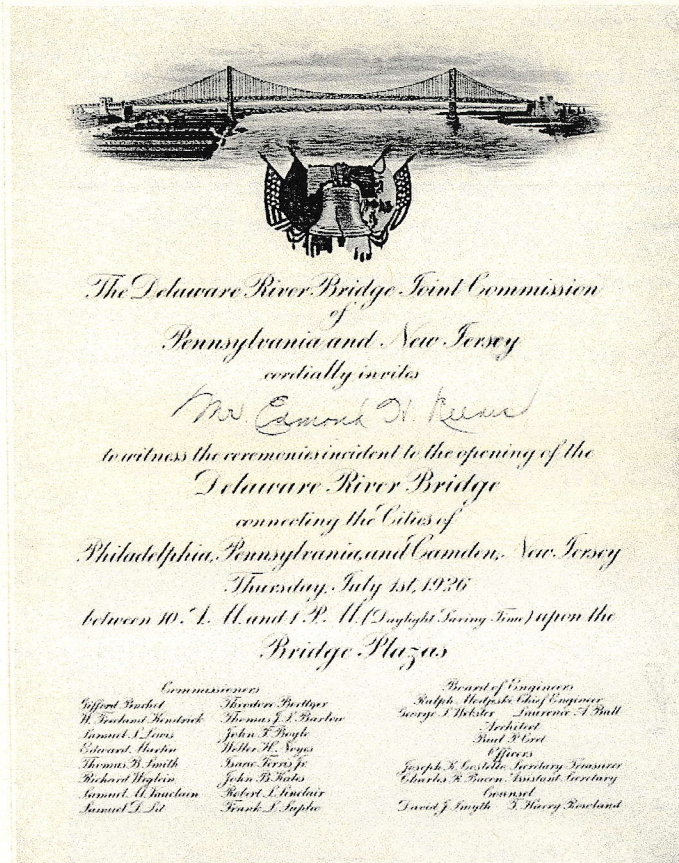 The Delaware River Bridge Joint Commission
of
Pennsylvania and New Jersey
cordially invites
Mr. Edmond H. Reeves
to witness the ceremonies incident to the opening of the
Delaware River Bridge
connecting the Cities of
Philadelphia, Pennsylvania, and Camden, New Jersey
Thursday, July 1st, 1926
between 10 A.M. and 1 P.M. (Daylight Saving Time) upon the
Bridge Plazas
Commissioners
Gifford Pinchot
W. Freeland Kendrick
Samuel S. Lewis
Edward Martin
Thomas B. Smith
Richard Weglein
Samuel M. Vauclain
Samuel D. Lit
Theodore Boettger
Thomas J. S. Barlow
John F. Boyle
Weller H. Noyes
Isaac Ferris Jr
John B. Kates
Robert L. Sinclair
Frank L. Suplee
Board of Engineers
Ralph Modjeski Chief Engineer
George S. Webster Laurence A. Ball
Architect
Paul P. Cret
Officers
Joseph K. Costello, Secretary Treasurer
Charles K. Bacon, Assistant Secretary
Counsel
David J. Smyth T. Harry Rowland